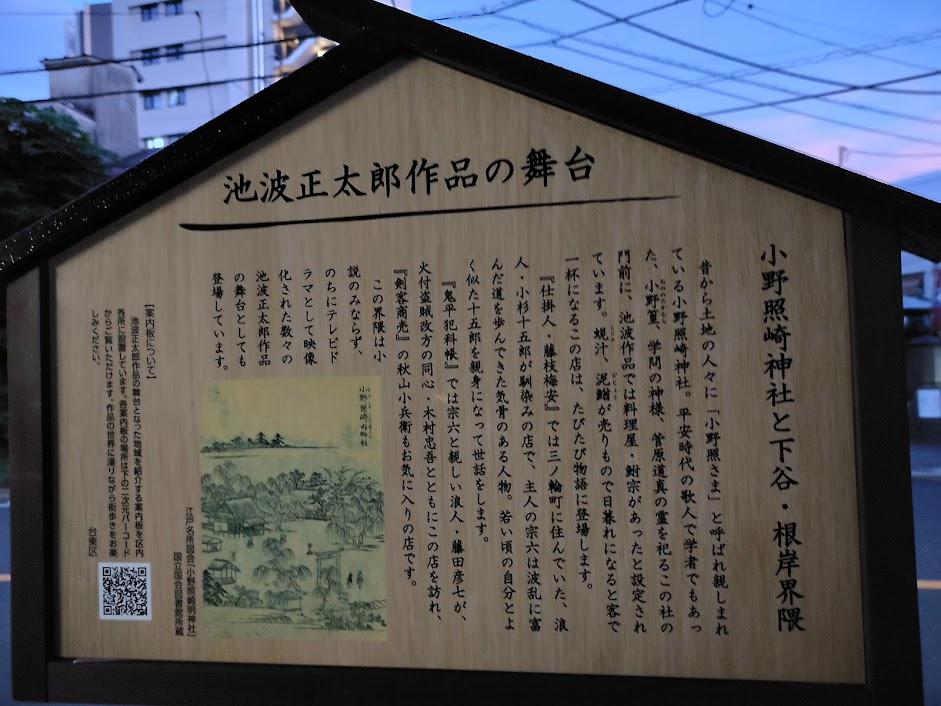 池波正太郎作品の舞台
小野照崎神社と下谷・根岸界隈
昔から土地の人々に「小野照さま」と呼ばれ親しまれ
ている小野照崎神社。平安時代の歌人で学者でもあっ
た、小野篁、学問の神様、菅原道真の霊を祀るこの社の
門前に、池波作品では料理屋・鮒宗があったと設定され
ています。蜆汁、泥鰌が売りもので日暮れになると客で
一杯になるこの店は、たびたび物語に登場します。
『仕掛人・藤枝梅安』では三ノ輪町に住んでいた、浪
人・小杉十五郎が馴染みの店で、主人の宗六は波乱に富
んだ道を歩んできた気骨のある人物。若い頃の自分とよ
く似た十五郎を親身になって世話をします。
『鬼平犯科帳』では宗六と親しい浪人・藤田彦七が、
火付盗賊改方の同心・木村忠吾とともにこの店を訪れ、
『剣客商売』の秋山小兵衛もお気に入りの店です。
この界隈は小
説のみならず、
のちにテレビド
ラマとして映像
化された数々の
池波正太郎作品
の舞台としても
登場しています。
小野照崎明神社
江戸名所図会「小野照崎明神社」
国立国会図書館所蔵
【案内板について】
池波正太郎作品の舞台となった地域を紹介する案内板を区内
各所に設置しています。各案内板の場所は下の二次元バーコード
からご覧いただけます。作品の世界に浸りながら街歩きをお楽
しみください。
台東区